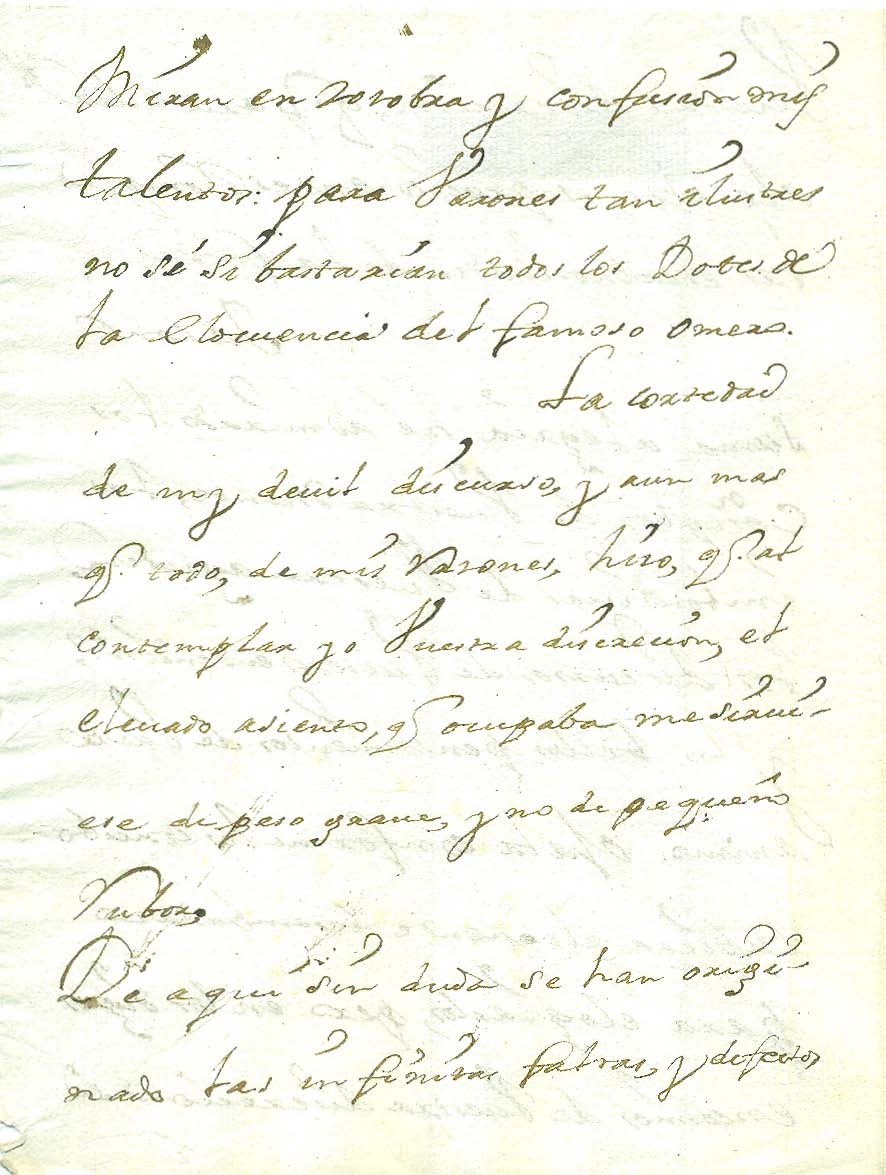 Miran en zozobra y confusion mis
talentos: para Varones tan ilustres
no sé si bastarian todos los Dotes de
la Elocuencia del famoso Omero.
La cortedad
de my devil discurso, y aun mas
q.e todo, de mis Razones, hizo, q.e al
contemplar yo Vuestra discrecion, el
elevado asiento, q.e ocupaba me sirvi-
ese de peso grave, y no de pequeño
Rubor.
De aqui sin duda se han origi-
nado las infinitas faltas, y defectos